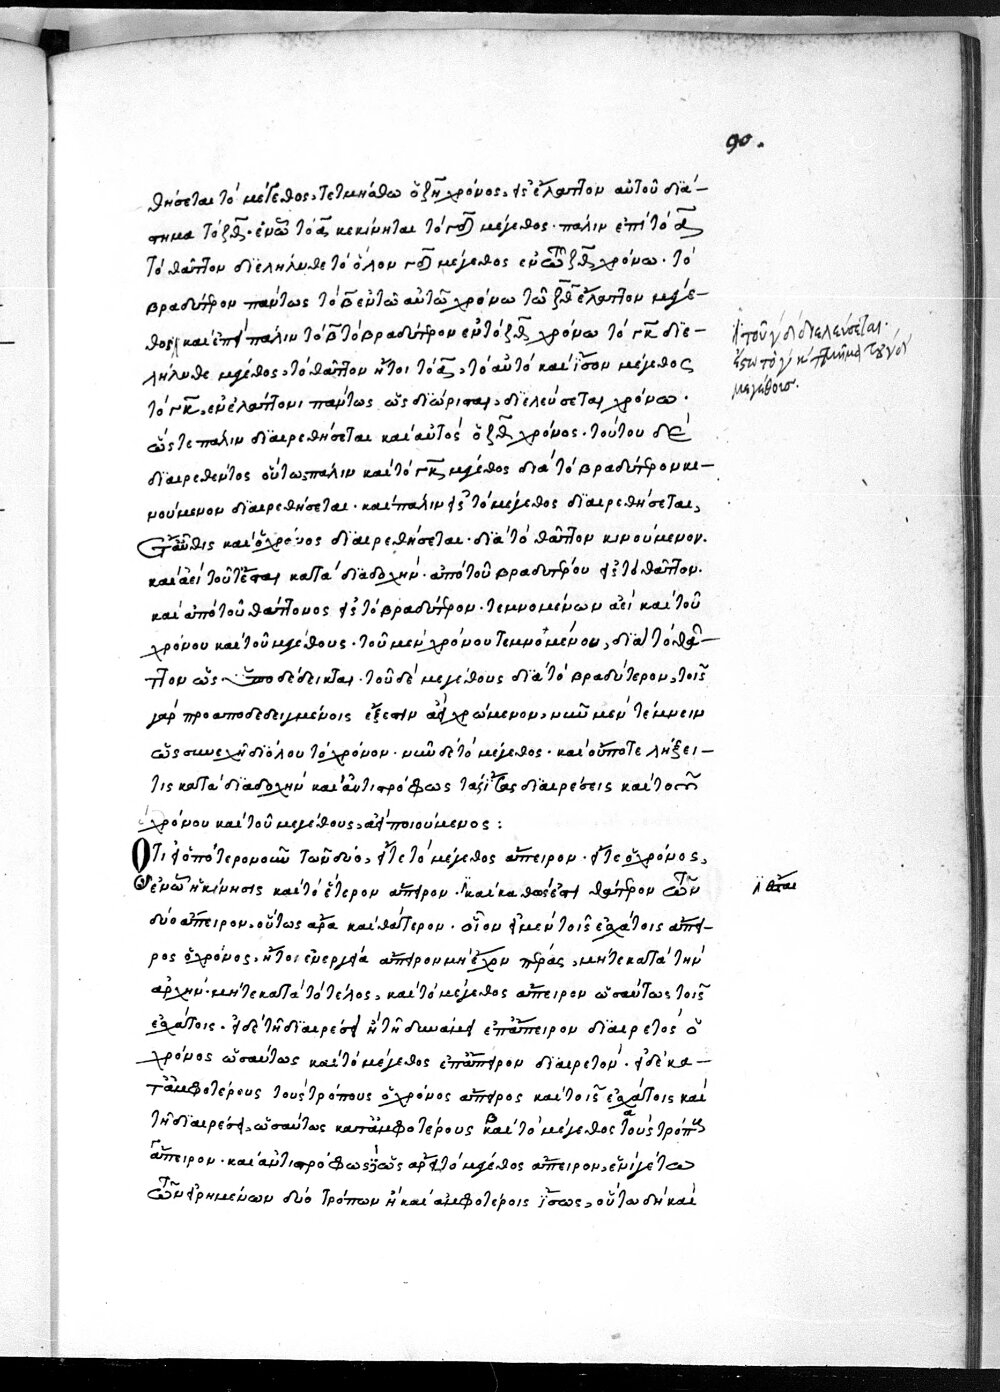 90.
θήσεται τὸ μέγεθος, τετμήσθω ὁ ζη χρόνος, εἰς ἔλαττον αὐτοῦ διά-
στημα τὸ ζθ. ἐν ᾧ τὸ α κεκίνηται τὸ γδ μέγεθος. πάλιν ἐπεὶ τὸ α
τὸ θᾶττον διελήλυθε τὸ ὅλον γδ μέγεθος ἐν τῷ ζθ χρόνω. τὸ
βραδύτερον πάντως τὸ β ἐν τῶ αὐτῶ χρόνω τῶ ζθ ἔλαττον μέγε-
θος καὶ ἐπεὶ πάλιν τὸ β τὸ βραδύτερον ἐν τὸ ζθ χρόνω τὸ γκ διε-
λήλυθε μέγεθος, τὸ θᾶττον ἤτοι τὸ α, τὸ αὐτὸ καὶ ἴσον μέγεθος
τὸ γκ, ἐν ἐλάττονι πάντως ὡς διώρισται, διελεύσεται χρόνω.
ὥστε πάλιν διαιρεθήσεται καὶ αὐτὸς ὁ ζθ χρόνος. τούτου δὲ
διαιρεθέντος οὕτως πάλιν καὶ τὸ γκ μέγεθος διὰ τὸ βραδύτερον κι-
νούμενον διαιρεθήσεται. καὶ πάλιν εἰς τὸ μέγεθος διαιρεθήσεται,
αὖθις καὶ ὁ χρόνος διαιρεθήσεται. διὰ τὸ θᾶττον κινούμενον.
καὶ ἀεὶ τοῦτ' ἔσται κατὰ διαδοχὴν. ἀπὸ τοῦ βραδυτέρου εἰς τὸ θᾶττον.
καὶ ἀπὸ τοῦ θάττονος εἰς τὸ βραδύτερον. τεμνομένων ἀεὶ καὶ τοῦ
χρόνου καὶ τοῦ μεγέθους. τοῦ μὲν χρόνου τεμνομένου, διὰ τὸ θᾶτ-
τον ὡς ὑποδέδεικται. τοῦ δὲ μεγέθους διὰ τὸ βραδύτερον, τοῖς
γὰρ προαποδεδειγμένοις ἔξεστιν ἀεὶ χρώμενον, νῦν μὲν τέμνειν
ὡς συνεχῆ διόλου τὸ χρόνον. νῦν δὲ τὸ μέγεθος. καὶ οὔποτε λήξει
τις κατὰ διαδοχὴν καὶ ἀντιστρόφως ταῖς τὰς διαιρέσεις καὶ τοῦ
χρόνου καὶ τοῦ μεγέθους, ἀεὶ ποιούμενος:
Ὅτι εἰ ὁπότερον οὖν τῶν δύο, εἴτε τὸ μέγεθος ἄπειρον. εἴτε ὁ χρόνος,
ἐν ᾧ ἡ κίνησις καὶ τὸ ἕτερον ἄπειρον. καὶ καθώς ἐστι θάτερον τῶν
δύο ἄπειρον, οὕτως ἄρα καὶ θάτερον. οἷον εἰ μὲν τοῖς ἐσχάτοις ἄπει-
ρος ὁ χρόνος, ἤτοι ἐνεργεία ἄπειρον μὴ ἔχον πέρας, μήτε κατὰ τὴν
ἀρχὴν. μήτε κατὰ τὸ τέλος, καὶ τὸ μέγεθος ἄπειρον ὡσαύτως τοῖς
ἐσχάτοις. εἰ δὲ τῆ διαιρέσει ἢ τῆ δυνάμει ἐπ' ἄπειρον διαιρετὸς ὁ
χρόνος ὡσαύτως καὶ τὸ μέγεθος ἐπ' ἄπειρον διαιρετὸν. εἰ δὲ κα-
τ' ἀμφοτέρους τοὺς τρόπους ὁ χρόνος ἄπειρος καὶ τοῖς ἐσχάτοις καὶ
τῆ διαιρέσει, ὡσαύτως κατ' ἀμφοτέρους καὶ τὸ μέγεθος τοὺς τρόπους
ἄπειρον. καὶ ἀντιστρόφως ὡς ἄρα τὸ μέγεθος ἄπειρον, ἑνί γέ τω
τῶν εἰρημένων δύο τρόπων ἢ καὶ ἀμφοτέροις ἴσως, οὕτω δὴ καὶ
τοῦ γδ διελεύσεται.
ἔστω τὸ γκ τμῆμα τοῦ γδ
μεγέθους.